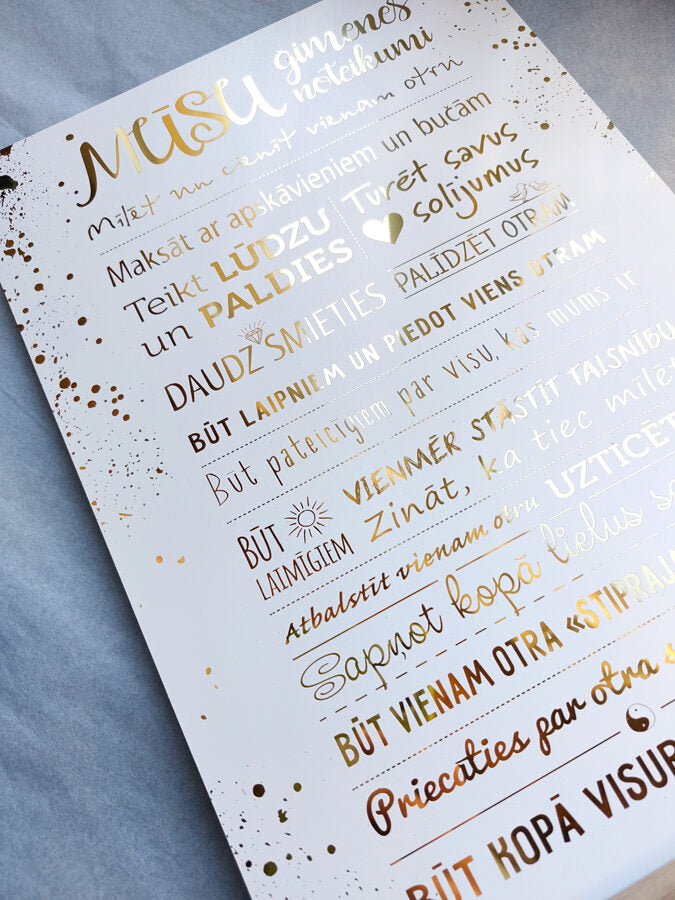 MŪSU ģimenes noteikumi
Mīlēt un cienīt vienam otru
Maksāt ar apskāvieniem un bučām
Teikt LŪDZU un PALDIES
Turēt savus solījumus
DAUDZ SMIETIES
PALĪDZĒT OTRAM
BŪT LAIPNIEM UN PIEDOT VIENS OTRAM
Būt pateicīgiem par visu, kas mums ir
BŪT LAIMĪGIEM
VIENMĒR STĀSTĪT TAISNĪBU
Zināt, ka tiec mīlēt
Atbalstīt vienam otru
UZTICĒT
Sapņot kopā lielus
BŪT VIENAM OTRA «STIPRAJA
Priecāties par otra
BŪT KOPĀ VISUR